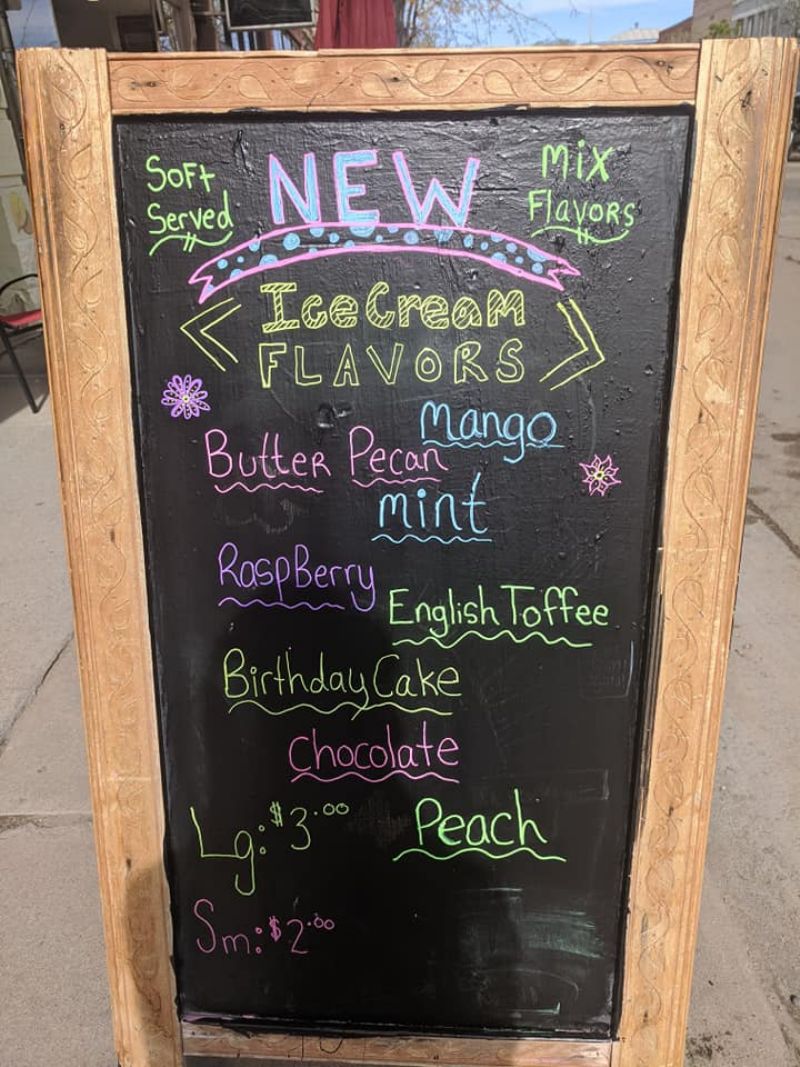 Soft
Served
NEW
Mix
Flavors
Ice Cream
FLAVORS
Mango
Butter Pecan
mint
RaspBerry
English Toffee
Birthday Cake
Chocolate
Lg: $3.00
Peach
Sm: $2.00